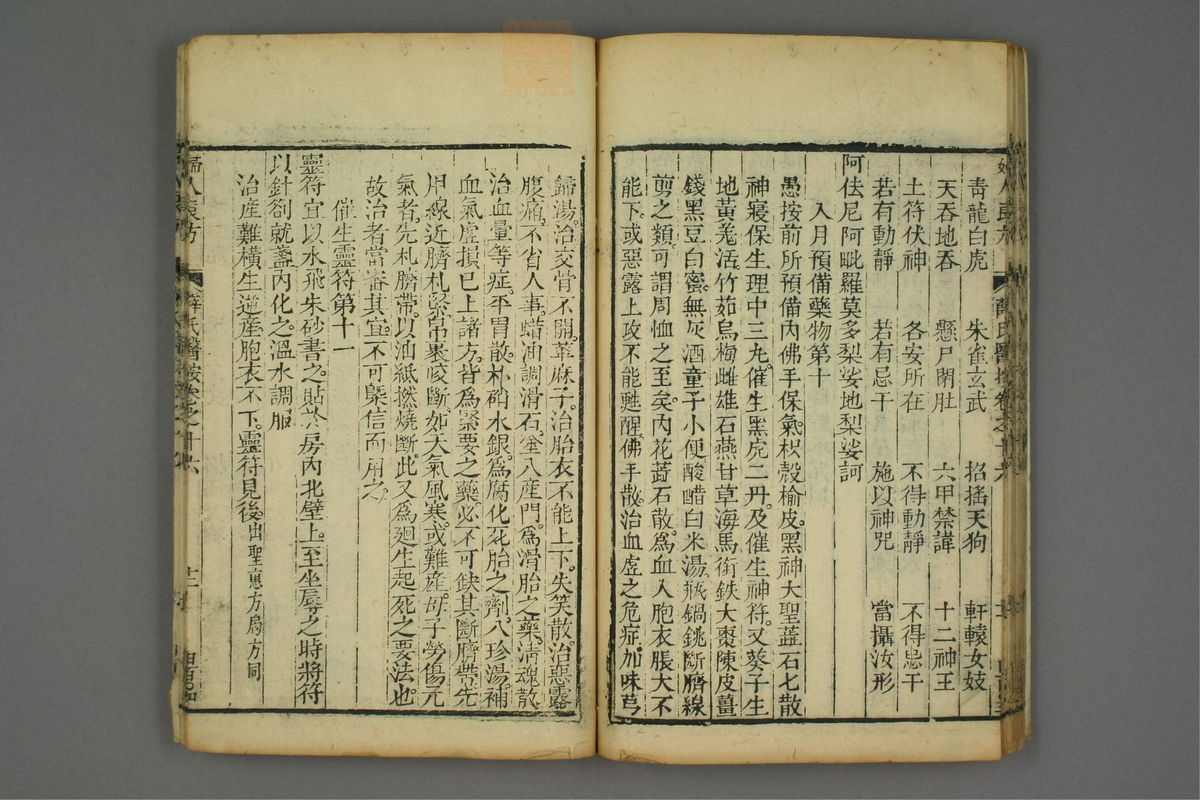 青龍白虎　朱雀玄武　招搖天狗　軒轅女妓
天吞地吞　懸尸閉肚　六甲禁諱　十二神王
土符伏神　各安所在　不得動靜　不得忌干
若有動靜　若有忌干　施以神咒　當攝汝形
阿佉尼阿毗羅莫多梨娑地梨娑訶
入月預備藥物第十
愚按前所預備內佛手保氣枳殼榆皮。黑神大聖蓋石七散
神寢保生理中三丸。催生黑虎二丹。及催生神符。又葵子生
地黃羌活。竹茹烏梅雌雄石燕甘草海馬銜鉄大棗陳皮薑
錢黑豆白蜜。無灰酒童子小便酸醋白米湯瓶鍋銚斷臍線
剪之類。可謂周恤之至矣。內花蕊石散。為血入胞衣脹大不
能下。或惡露上攻不能甦醒。佛手散。治血虛之危症。加味芎
歸湯。治交骨不開。萆麻子。治胎衣不能上下。失笑散。治惡露
腹痛。不省人事。蜡油調滑石。塗入產門。為滑胎之藥。清魂散
治血暈等症。平胃散。朴硝水銀。為腐化死胎之劑。八珍湯。補
血氣虛損。已上諸方。皆為緊要之藥。必不可缺。其斷臍帶先
用線近臍札緊。帛裹咬斷。如天氣風寒。或難產。母子勞傷元
氣者。先札臍帶。以油紙撚燒斷。此又為廻生起死之要法也。
故治者當審其宜。不可槩信而用之。
催生靈符第十一
靈符宜以水飛朱砂書之。貼於房內北壁上。至坐蓐之時將符
以針劄就盞內化之。溫水調服
治產難橫生逆產胞衣不下。靈符見後。出聖惠方局方同
婦人良方
薛氏醫按卷之十六